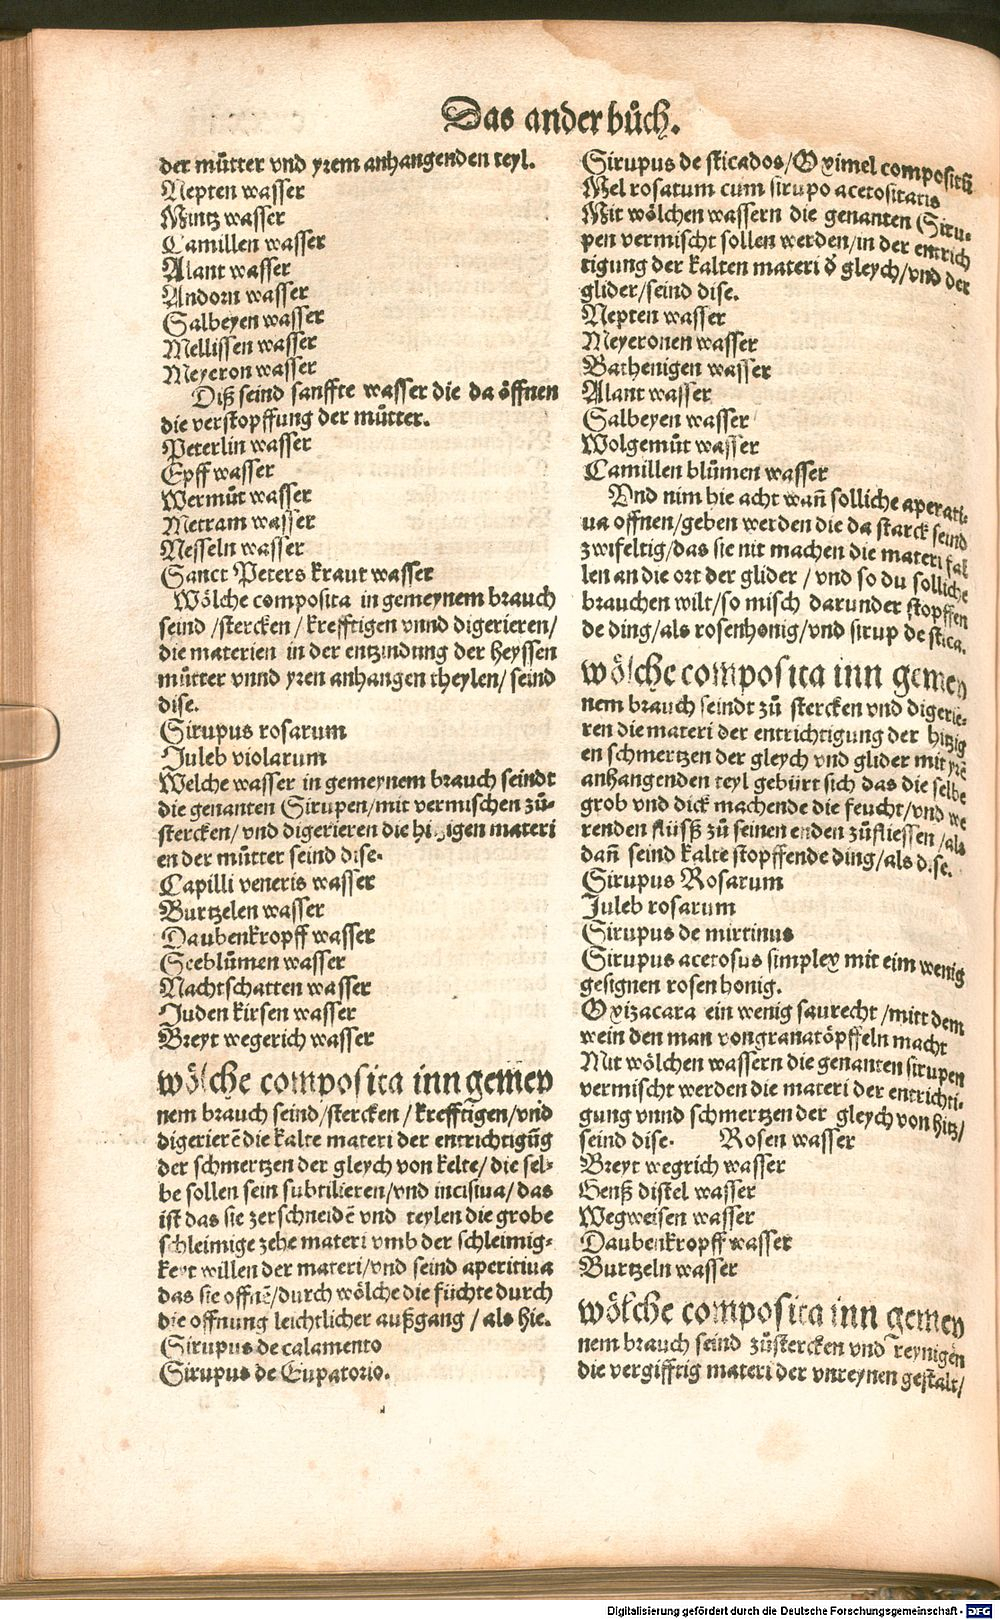 Das ander bůch.
der můtter vnd yrem anhangenden teyl.
Nepten wasser
Mintz wasser
Camillen wasser
Alant wasser
Andorn wasser
Salbeyen wasser
Mellissen wasser
Meyeron wasser
Diß seind sanffte wasser die da öffnen
die verstopffung der můtter.
Peterlin wasser
Epff wasser
Wermůt wasser
Metram wasser
Nesseln wasser
Sanct Peters kraut wasser
Wölche composita in gemeynem brauch
seind /stercken / krefftigen vnnd digerieren/
die materien in der entzindung der heyssen
můtter vnnd yren anhangen theylen/ seind
dise.
Sirupus rosarum
Juleb violarum
Welche wasser in gemeynem brauch seindt
die genanten Sirupen/mit vermischen zů-
stercken/ vnd digerieren die hitzigen materi
en der můtter seind dise.
Capilli veneris wasser
Burtzelen wasser
Daubenkropff wasser
Seeblůmen wasser
Nachtschatten wasser
Juden kirsen wasser
Breyt wegerich wasser
wölche composita inn gemey
nem brauch seind/stercken / krefftigen/vnd
digerierē die kalte materi der entrichtigūg
der schmertzen der gleych von kelte/ die sel-
be sollen sein subtilieren/vnd incisiua/ das
ist das sie zerschneidē vnd teylen die grobe
schleimige zehe materi vmb der schleimig-
keyt willen der materi/vnd seind aperitiua
das sie offnē/durch wölche die füchte durch
die offnung leichtlicher außgang / als hie.
Sirupus de calamento
Sirupus de Eupatorio.
Sirupus de sticados/Oximel compositū
Mel rosatum cum sirupo acetositatis
Mit wölchen wassern die genanten Siru-
pen vermischt sollen werden/in der entrich
tigung der kalten materi d̕ gleych/vnd der
glider/seind dise.
Nepten wasser
Meyeronen wasser
Bathenigen wasser
Alant wasser
Salbeyen wasser
Wolgemůt wasser
Camillen blůmen wasser
Vnd nim hie acht wañ solliche aperati-
ua offnen/geben werden die da starck seind
zwifeltig/das sie nit machen die materi fal
len an die ort der glider / vnd so du solliche
brauchen wilt/so misch darunder stopffen
de ding/als rosenhonig/vnd sirup de stica.
wölche composita inn gemey
nem brauch seindt zů stercken vnd digerie-
ren die materi der entrichtigung der hitzig
en schmertzen der gleych vnd glider mit yrē
anhangenden teyl gebürt sich das die selbe
grob vnd dick machende die feucht/vnd we
renden flüsß zů seinen enden zůfliessen /als
dañ seind kalte stopffende ding/als dise.
Sirupus Rosarum
Juleb rosarum
Sirupus de mirtinus
Sirupus acetosus simplex mit eim wenig
gesignen rosen honig.
Oxizacara ein wenig saurecht /mitt dem
wein den man von granatöpffeln macht
Mit wölchen wassern die genanten sirupen
vermischt werden die materi der entrichti-
gung vnnd schmertzen der gleych von hitz/
seind dise. Rosen wasser
Breyt wegrich wasser
Genß distel wasser
Wegweisen wasser
Daubenkropff wasser
Burtzeln wasser
wölche composita inn gemey
nem brauch seind zůstercken vnd reynigen
die vergifftig materi der vnreynen gestalt/
Digitalisierung gefördert durch die Deutsche Forschungsgemeinschaft - DFG